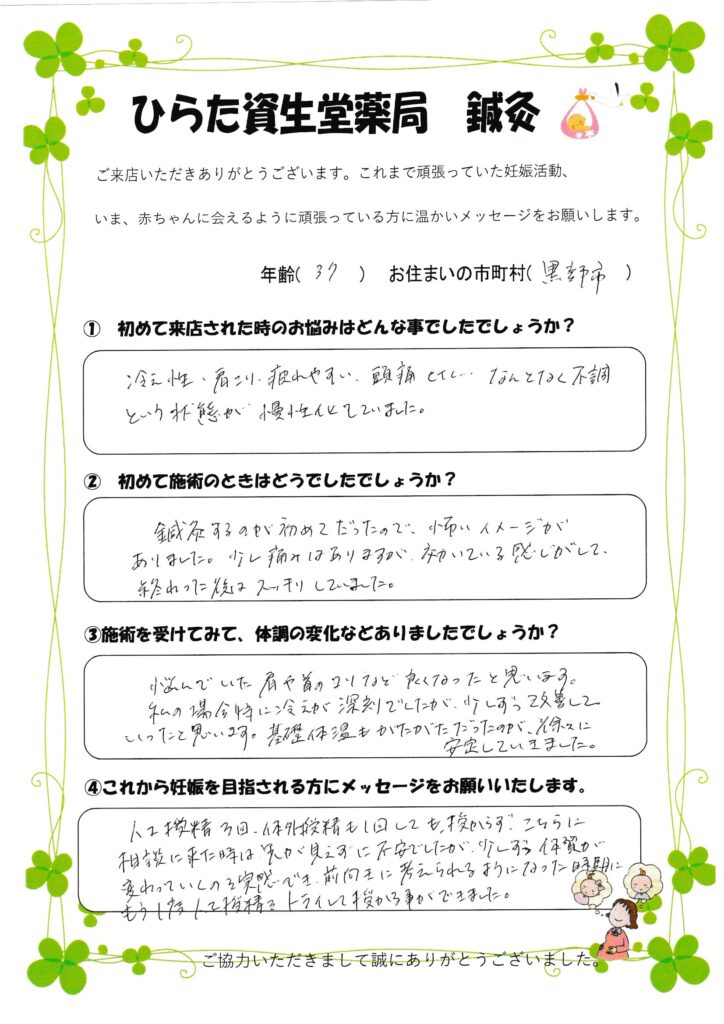 ひらた資生堂薬局　鍼灸
ご来店いただきありがとうございます。これまで頑張っていた妊娠活動、
いま、赤ちゃんに会えるように頑張っている方に温かいメッセージをお願いします。
年齢( 37 )　お住まいの市町村( 黒部市 )
①　初めて来店された時のお悩みはどんな事でしたでしょうか？
冷え性、肩こり、疲れやすい、頭痛 として… なんとなく不調
という状態が 慢性化していました。
②　初めて施術のときはどうでしたでしょうか？
鍼灸するのが初めてだったので、怖いイメージが
ありました。少し痛みはありますが、効いている感じがして、
終わった後は スッキリしていました。
③施術を受けてみて、体調の変化などありましたでしょうか？
悩んでいた 肩や首のコリなど 良くなったと思います。
私の場合特に冷えが 深刻でしたが、少しずつ改善して
いったと思います。基礎体温も がたがただったのが、徐々に
安定していきました。
④これから妊娠を目指される方にメッセージをお願いいたします。
人工授精3回、体外授精も1回しても、授からず、こちらに
相談に来た時は 先が見えずに不安でしたが、少しずつ 体質が
変わっていくのを実感でき、前向きに考えられるようになった時期に
もう1度 人工授精をトライして授かる事ができました。
ご協力いただきまして誠にありがとうございました。